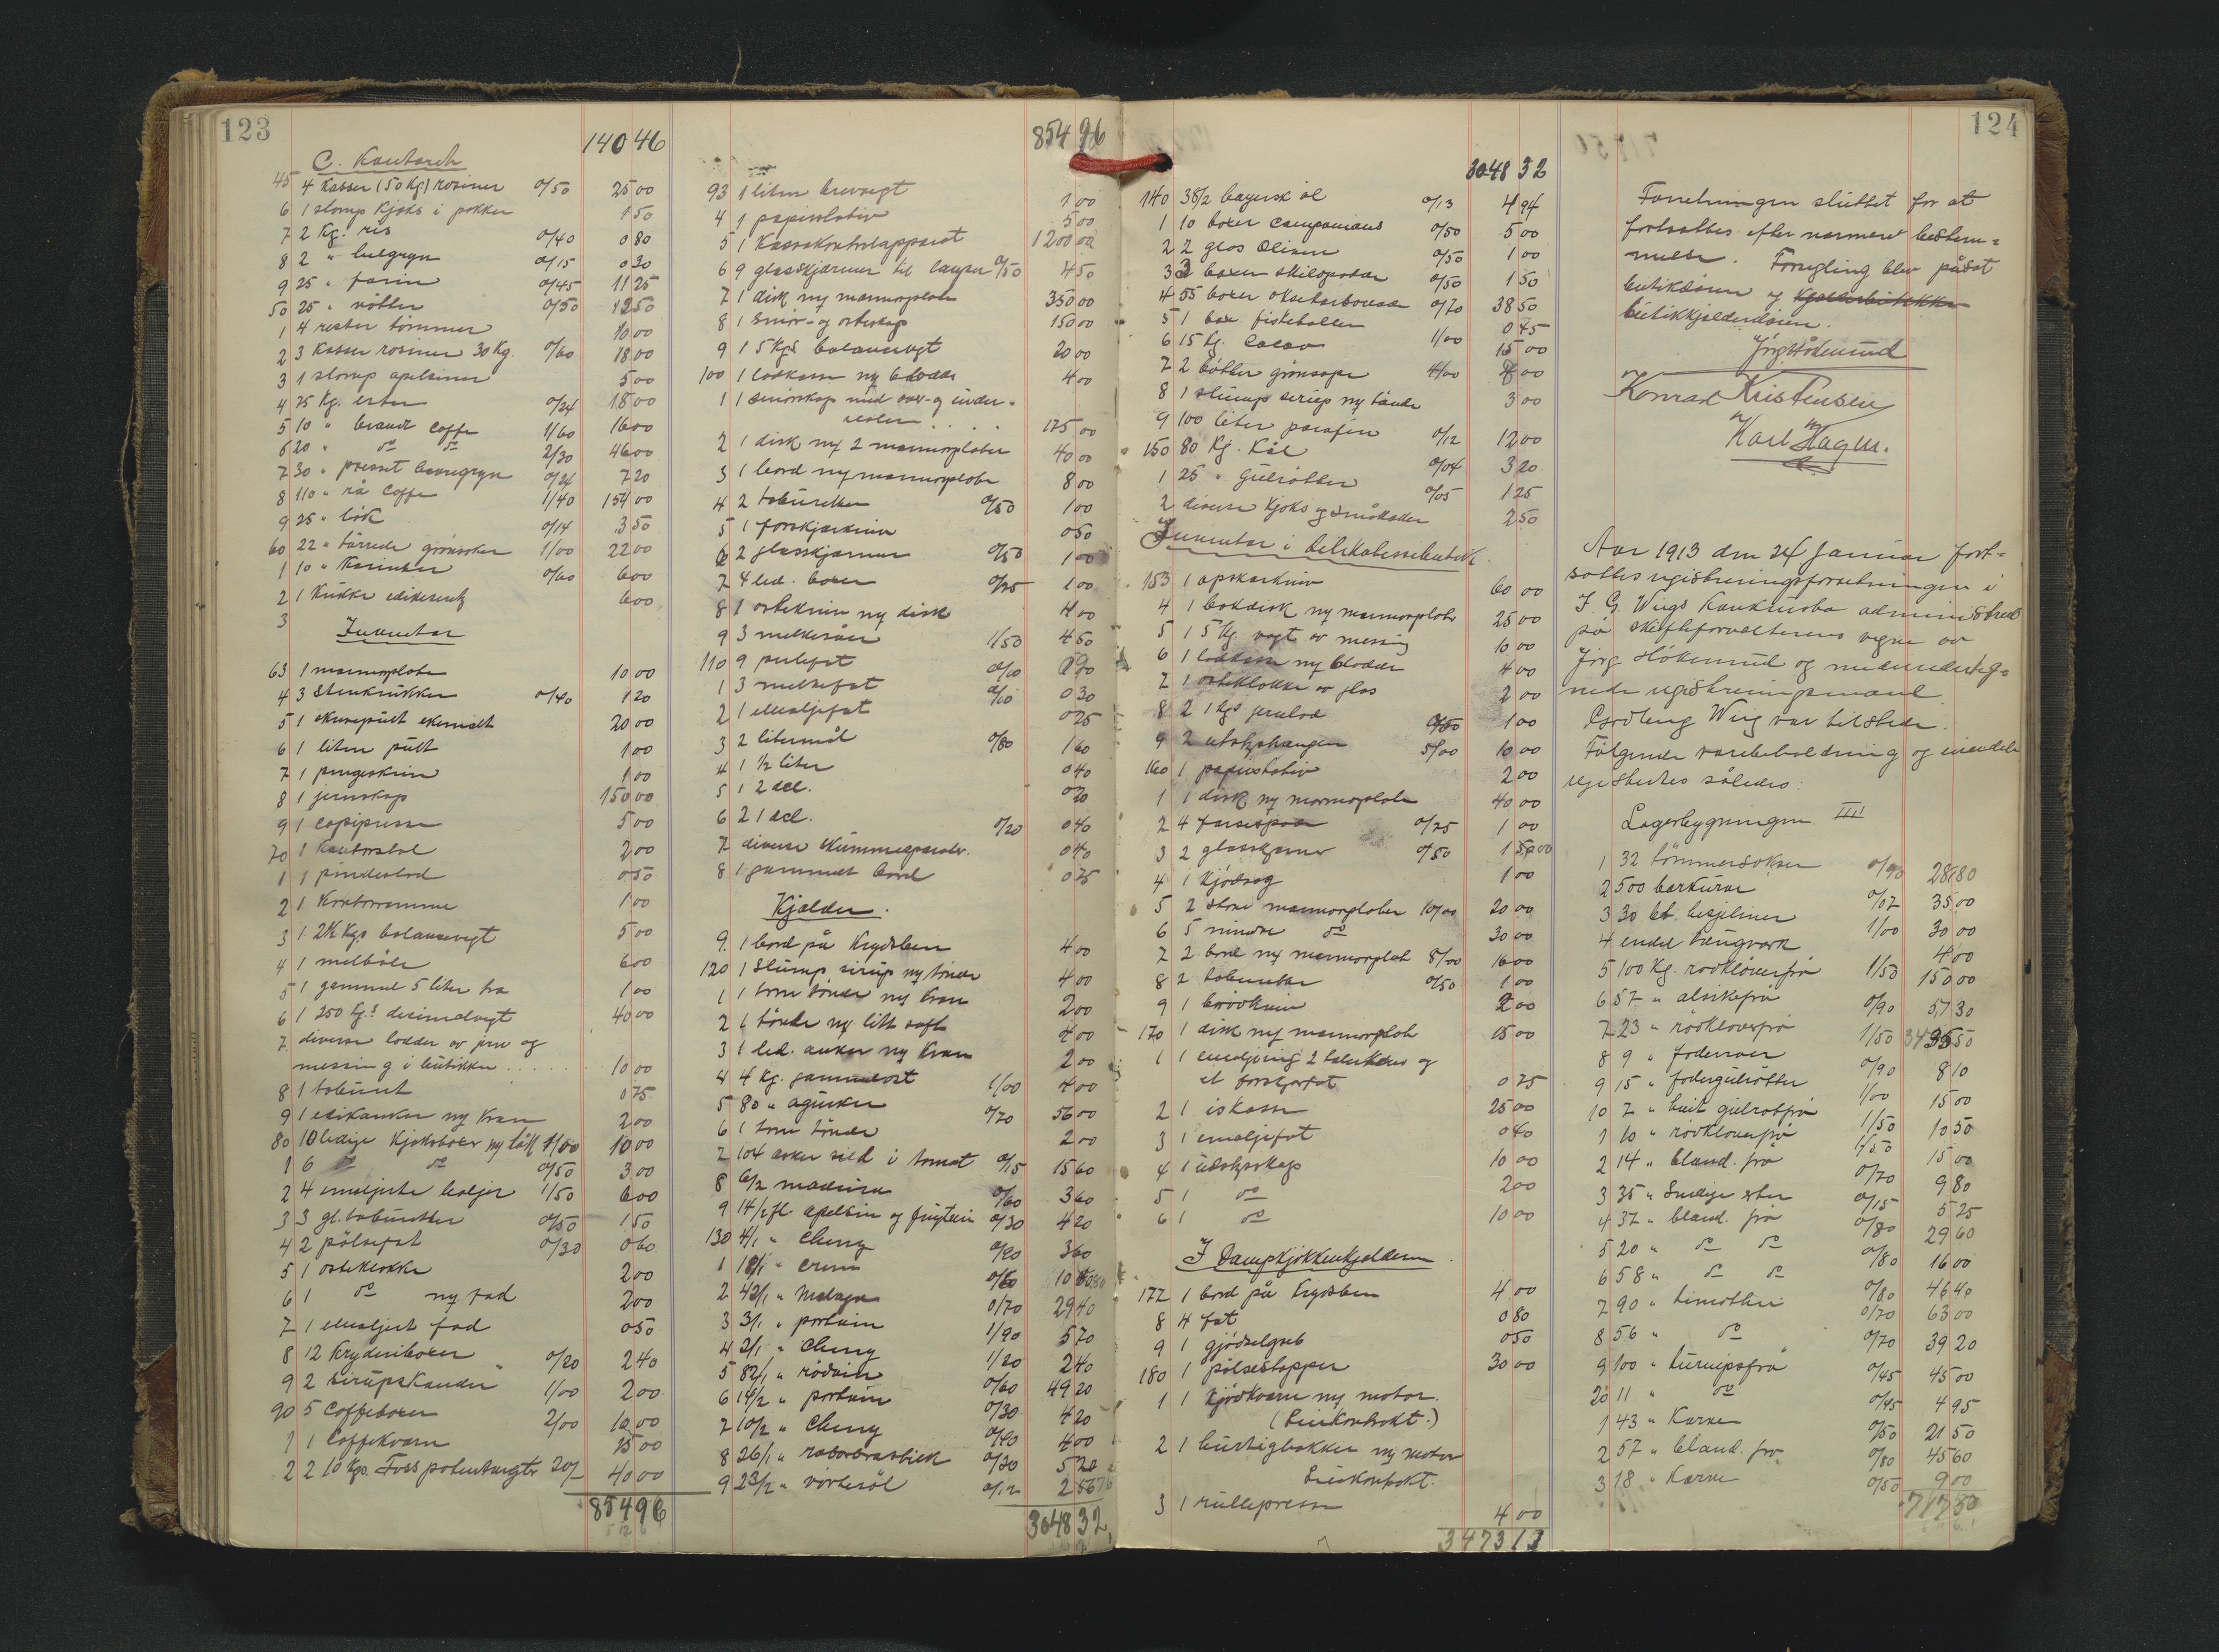 123
140 46
C.
45 4 Kasser (50 Kg) rosiner 0/50 25 00
6 1 slump Kjeks i pakker 1 50
7 2 Kg. ris 0/40 0 80
8 2 " 0/15 0 30
9 25 " farin 0/45 11 25
50 25 " nötter 0/50 12 50
1 4 rester tömmer 10 00
2 3 Kasser rosiner 30 Kg. 0/60 18 00
3 1 slump apelsiner 5 00
4 75 Kg. erter 0/24 18 00
5 10 " brændt Caffe 1/60 16 00
6 20 " do do 2/30 46 00
7 30 " presset havregryn 0/24 7 20
8 110 " rå Caffe 1/40 154 00
9 25 " lök 0/14 3 50
60 22 " törrede grönsaker 1/00 22 00
1 10 " Korinter 0/60 6 00
2 1 Krukke 6 00
3
Inventar
63 1 marmorplate 10 00
4 3 Stenkrukker 0/40 1 20
5 1 skrivepult 20 00
6 1 liten pult 1 00
7 1 pengeskrin 1 00
8 1 jernskap 150 00
9 1 Copipresse 5 00
70 1 Kontorstol 2 00
1 1 pindestol 0 50
2 1 Kontorramme 1 00
3 1 2½ Kgs balancevegt 5 00
4 1 melbåle 6 00
5 1 gammel 5 liter 1 00
6 1 250 Kg.s decimalvegt 40 00
7 diverse lodder av jern og
messing i butikken . . . . . 10 00
8 1 taburet 0 75
9 1 edikanker m/ Kran 2 00
80 10 ledige Kjeksboxer m/ låk 1/00 10 00
1 6 do do 0/50 3 00
2 4 emaljerte baljer 1/50 6 00
3 3 gl. taburetter 0/50 1 50
4 2 pölsefat 0/30 0 60
5 1 osteklokke 2 00
6 1 do m/ fad 2 00
7 1 emaljert fad 0 50
8 12 Kryderiboxer 0/20 2 40
9 2 sirupskander 1/00 2 00
90 5 Caffeboxer 2/00 10 00
1 1 Caffekvern 15 00
2 2 10 Kgs. Foss 20/ 40 00
854 96
854 96
93 1 liten brevvegt 1 00
4 1 papirstativ 5 00
5 1 Kassakontrolapparat 1200 00
6 9 glasskjærmer til lamper 0/50 4 50
7 1 disk m/ marmorplate 350 00
8 1 smör- og osteskap 150 00
9 1 5 Kgs balancevegt 20 00
100 1 lodkasse m/ 6 lodde 4 00
1 1 smörskap med over- og under-
reoler . . . . 175 00
2 1 disk m/ 2 marmorplater 40 00
3 1 bord m/ marmorplate 8 00
4 2 taburetter 0/50 1 00
5 1 forskjærkniv 0 50
6 2 glasskjærmer 0/50 1 00
7 4 led. boxer 0/25 1 00
8 1 ostekniv m/ disk 4 00
9 3 melkesiler 1/50 4 50
110 9 0/10 0 90
1 3 melkefat 0/10 0 30
2 1 emaljefat 0 25
3 2 litermål 0/80 1 60
4 1 ½ liter 0 40
5 1 2 dcl. 0 20
6 2 1 dcl. 0/20 0 40
7 diverse 0 40
8 1 gammelt bord 0 75
Kjelder.
9 1 bord på Krydsben 4 00
120 1 Slump sirup m/ tönde 4 00
1 1 tom tönde m/ Kran 2 00
2 1 tönde m/ litt saft 4 00
3 1 led. anker m/ Kran 2 00
4 4 Kg. gammelost 1/00 4 00
5 80 " agurker 0/70 56 00
6 1 tom tönde 2 00
7 104 æsker sild i tomat 0/15 15 60
8 6/2 madeira 0/60 3 60
9 14/2 fl. apelsin og 0/30 4 20
130 4/1 " Cherry 0/90 3 60
1 18/1 " 0/60 10 80
2 42/1 " Malaga 0/70 29 40
3 3/1 " portvin 1/90 5 70
4 2/1 " Cherry 1/20 2 40
5 82/1 " rödvin 0/60 49 20
6 14/2 " portvin 0/30 4 20
7 10/2 " Cherry 0/40 4 00
8 26/1 " 0/20 5 20
9 23/2 " vörteröl 0/12 2 76
3048 32
3048 32
140 38/2 bayersk öl 0/13 4 94
1 10 boxer 0/50 5 00
2 2 glas Oliven 0/50 1 00
3 3 boxer skilpadde 0/50 1 50
4 55 boxer oksekarbonade 0/70 38 50
5 1 box fiskeboller 0 45
6 15 Kg. Cacao 1/00 15 00
7 2 bötter grönsåpe 4/00 8 00
8 1 slump sirup m/ tönde 3 00
9 100 liter parafin 0/12 12 00
150 80 Kg. Kål 0/04 3 20
1 25 " gulrötter 0/05 1 25
2 diverse Kjeks og småkaker 2 50
Inventar i delikatessebutik.
153 1 60 00
4 1 m/ marmorplate 25 00
5 1 5 Kg vegt av messing 10 00
6 1 lodkasse m/ 6 lodder 4 00
7 1 osteklokke av glas 2 00
8 2 1 Kgs jernlod 0/50 1 00
9 2 5/00 10 00
160 1 papirstativ 2 00
1 1 disk m/ marmorplate 40 00
2 4 0/25 1 00
3 2 glasskjærmer 0/50 1 00
4 1 Kjödsag 1 00
5 2 store marmorplater 10/00 20 00
6 5 mindre do 30 00
7 2 bord m/ marmorplate 8/00 16 00
8 2 taburetter 0/50 1 00
9 1 brödkniv 2 00
170 1 disk m/ marmorplate 15 00
1 1 og
et 0 75
2 1 iskasse 25 00
3 1 emaljefat 0 40
4 1 10 00
5 1 do 2 00
6 1 do 10 00
I Dampkjökkenkjelderen
177 1 bord på Krydsben 4 00
8 4 fat 0 80
9 1 gjödselgreb 0 50
180 1 pölsestopper 30 00
1 1 Kjödkværn m/ motor.
(Leiekontrakt.)
2 1 hurtighakker m/ motor
Leiekontrakt.
3 1 rullepresse 4 00
3473 13
124
Forretningen sluttet for at
fortsættes efter nærmere bestem=
melse. Forsegling blev påsat
butikdören og
butikkjelderdören.
Konrad Kristensen
Karl Hagen.
Aar 1913 den 24 Januar fort=
sattes registreringsforretningen i
J. G. Wiigs Konkursbo administrert
på skifteforvalterens vegne av
Jörg. og medunderteg=
nede registreringsmænd.
Wiig var tilstede.
Fölgende varebeholdning og inventar
registrertes således:
Lagerbygningen III
1 32 tömmersakser 0/90 28 80
2 500 barkurve 0/07 35 00
3 30 bt. hesjeliner 1/00 30 00
4 endel taugverk 4 00
5 100 Kg. rödklöverfrö 1/50 150 00
6 57 " alsikefrö 0/90 57 30
7 23 " rödklöverfrö 1/50 34 50
8 9 " foderroer 0/90 8 10
9 15 " fodergulrötter 1/00 15 00
10 7 " hvit gulrotfrö 1/50 10 50
1 10 " rödklöverfrö 1/50 15 00
2 14 " bland. frö 0/70 9 80
3 35 " Snelige erter 0/15 5 25
4 37 " bland. frö 0/80 29 60
5 20 " do do 0/80 16 00
6 58 " do do 0/80 46 40
7 90 " timothei 0/70 63 00
8 56 " do 0/70 39 20
9 100 " turnipsfrö 0/45 45 00
20 11 " do 0/45 4 95
1 43 " Karve 0/50 21 50
2 57 " bland. frö 0/80 45 60
3 18 " Karve 0/50 9 00
717 50